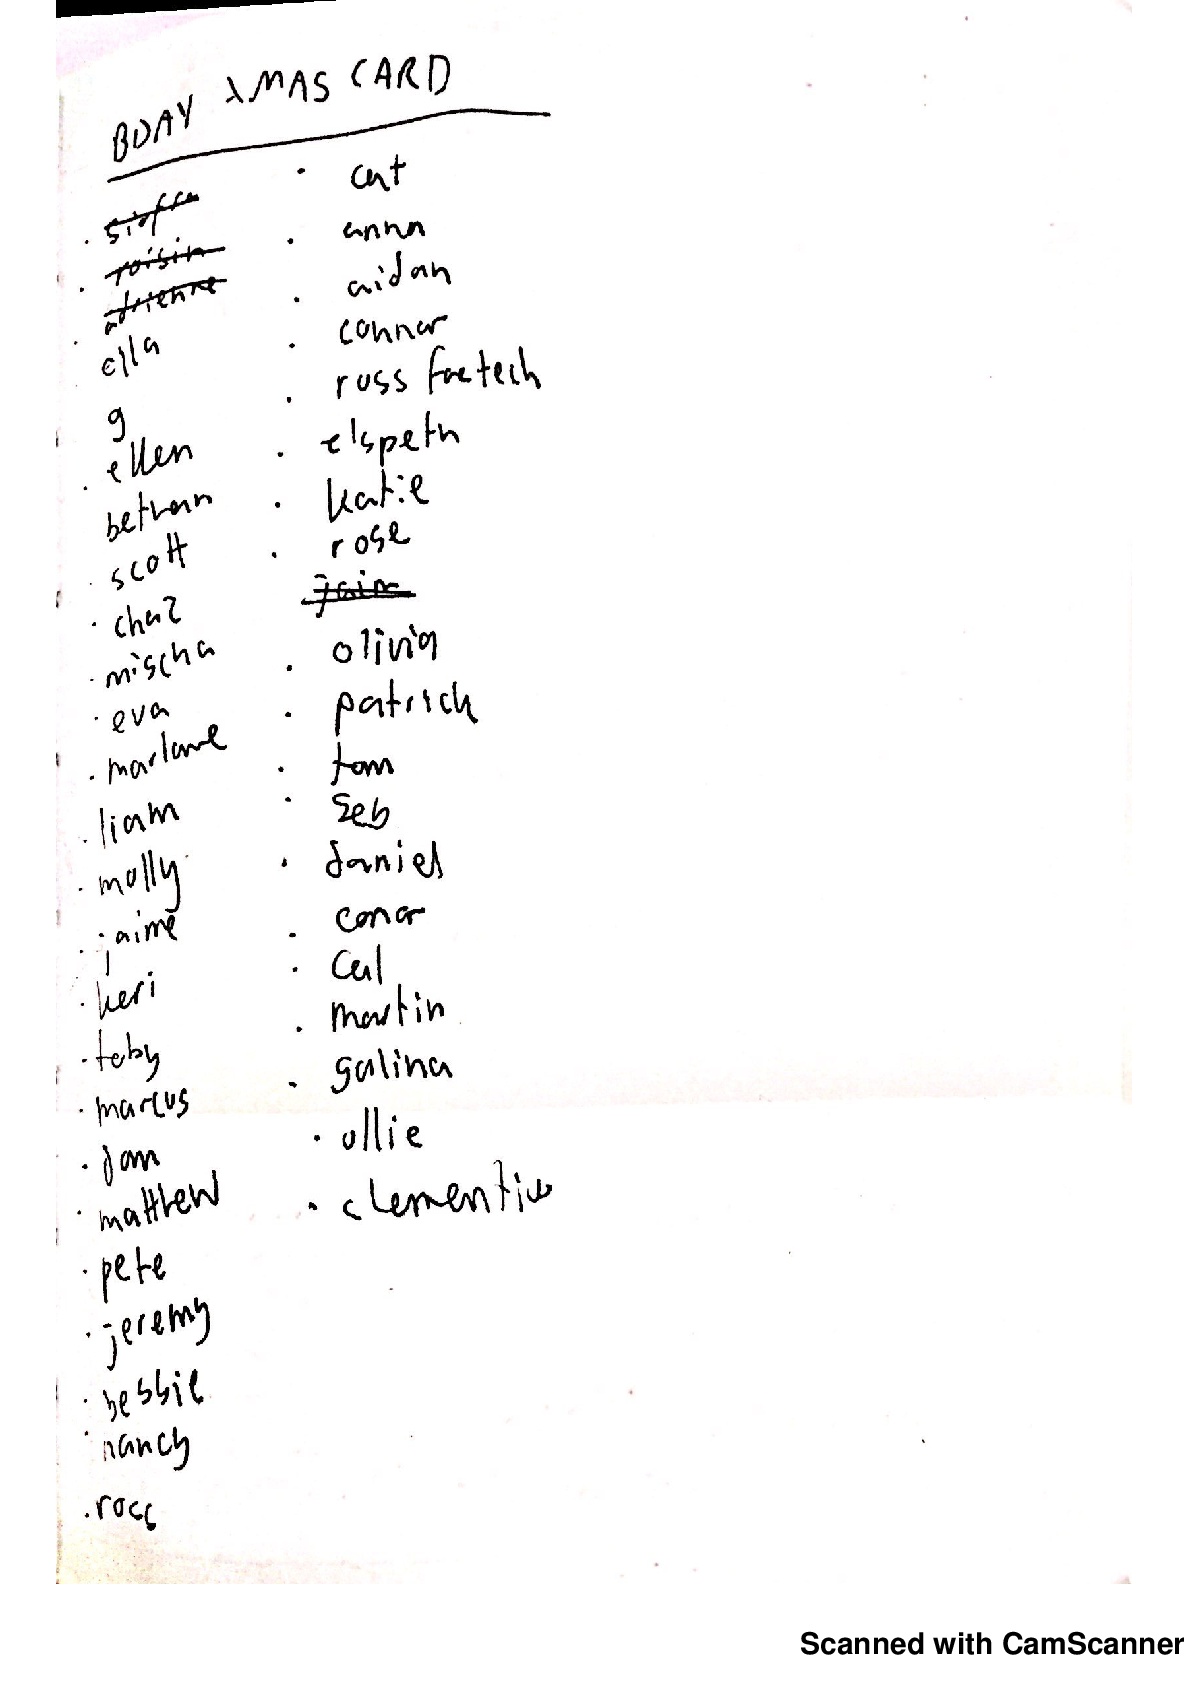 BDAY XMAS CARD
roisin
adrienne
ella
g
ellen
bethan
scott
chaz
mischa
eva
liam
molly
jaime
keri
toby
marcus
dom
matthew
pete
jeremy
bessie
nancy
ross
cat
anna
aidan
connor
ross faetech
elspeth
katie
rose
olivia
patrick
tom
seb
daniel
conor
cal
martin
galina
ollie
Scanned with CamScanner